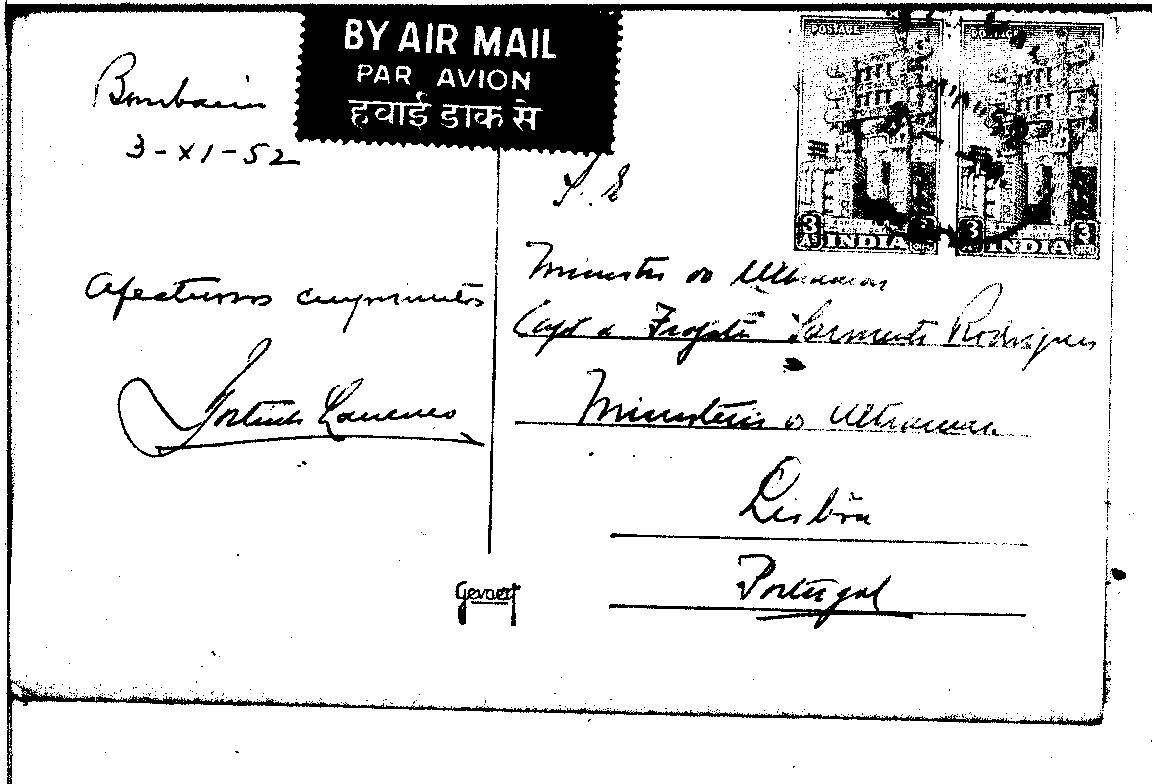 BY AIR MAIL
PAR AVION
हवाई डाक से
Bombaim
3-XI-52
Afectuosos cumprimentos
POSTAGE
3 As INDIA 3
3 As INDIA 3
S. E.
Ministro do Ultramar
Cap. de Fragata Sarmento Rodrigues
Ministério do Ultramar
Lisbôa
Portugal
Gevaert